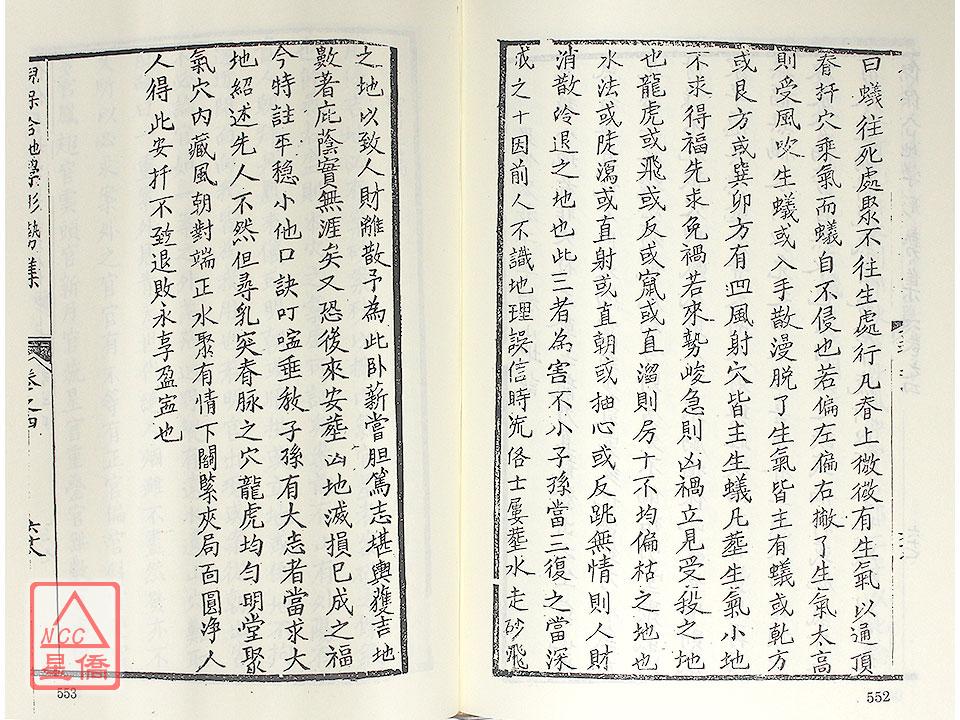 曰蟻往死處聚不往生處行凡脊上微微有生氣以通頂
脊扦穴乘氣而蟻自不侵也若偏左偏右撇了生氣太高
則受風吹生蟻或入手散漫脫了生氣皆主有蟻或乾方
或艮方或巽卯方有四風射穴皆主生蟻凡塟生氣小地
不求得福先求免禍若來勢峻急則凶禍立見受殺之地
也龍虎或飛或反或竄或直溜則房十不均偏枯之地也
水法或陡瀉或直射或直朝或抽心或反跳無情則人財
消散冷退之地也此三者為害不小子孫當三復之當深
戒之十因前人不識地理誤信時流俗士屢塟水走砂飛
之地以致人財離散予為此卧薪嘗胆篤志堪輿獲吉地
數著庇蔭實無涯矣又恐後來安塟凶地滅損已成之福
今特註平穩小地口訣叮嚀垂教子孫有大志者當求大
地紹述先人不然但尋乳突脊脉之穴龍虎均勻明堂聚
氣穴內藏風朝對端正水聚有情下關緊夾局面圓净人
人得此安扦不致退敗永享盈寧也
卷之四
NCC
星僑
553
552